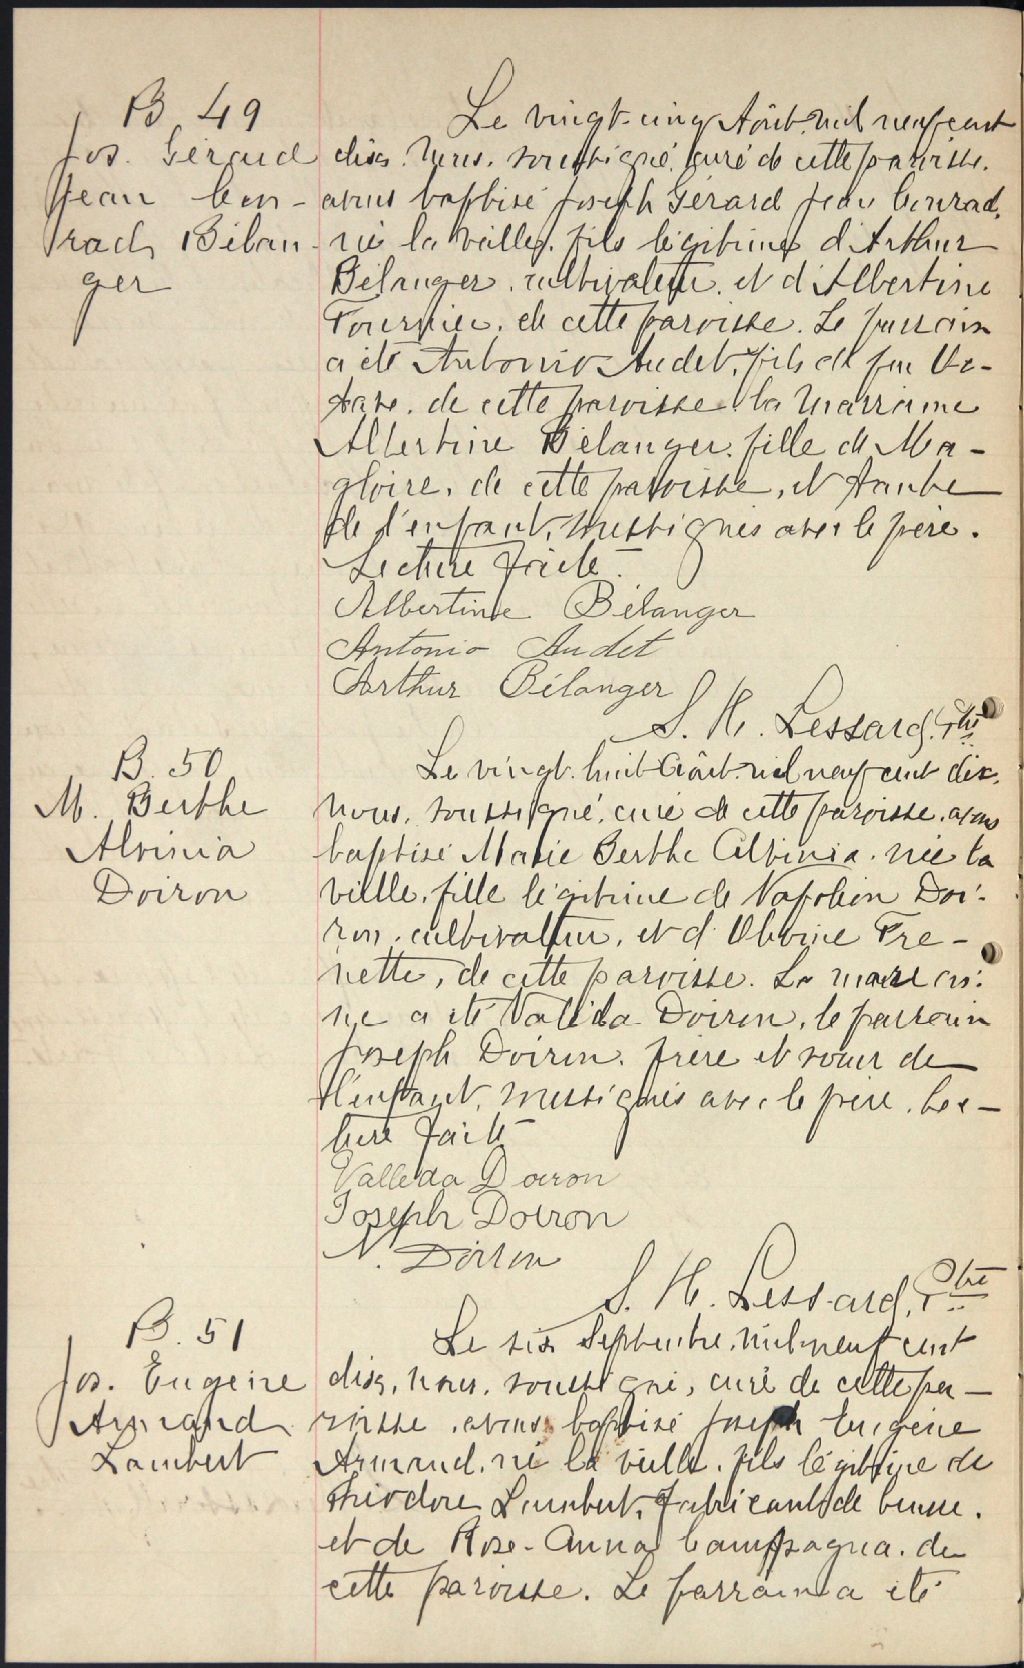 B. 49
Jos. Gérard
Jean Con-
rad, Bélan-
ger
Le vingt-cinq Août mil neuf cent
dix, nous, soussigné, curé de cette paroisse,
avons baptisé Joseph Gérard Jean Conrad,
né la veille, fils légitime d'Arthur
Bélanger, cultivateur, et d'Albertine
Fournier, de cette paroisse. Le parrain
a été Antonio Audet, fils de feu
de cette paroisse, la marraine
Albertine Bélanger, fille de Ma-
gloire, de cette paroisse, et tante
de l'enfant, soussignés avec le père.
Lecture faite.
Albertine Bélanger
Antonio Audet
Arthur Bélanger
S. H. Lessard, Ptre
B. 50
M. Berthe
Alvinia
Doiron
Le vingt-huit Août mil neuf cent dix,
nous, soussigné, curé de cette paroisse, avons
baptisé Marie Berthe Alvinia, née la
veille, fille légitime de Napoléon Doi-
ron, cultivateur, et d' Fre-
nette, de cette paroisse. La marrai-
ne a été Valéda Doiron, le parrain
Joseph Doiron, frère et sœur de
l'enfant, soussignés avec le père. Lec-
ture faite
Valleda Doiron
Joseph Doiron
N. Doiron
S. H. Lessard, Ptre
B. 51
Jos. Eugène
Armand
Lambert
Le six Septembre, mil neuf cent
dix, nous, soussigné, curé de cette pa-
roisse, avons baptisé Joseph Eugène
Armand, né la veille, fils légitime de
Théodore Lambert, fabricant de beurre,
et de Rose-Anna Campagna, de
cette paroisse. Le parrain a été